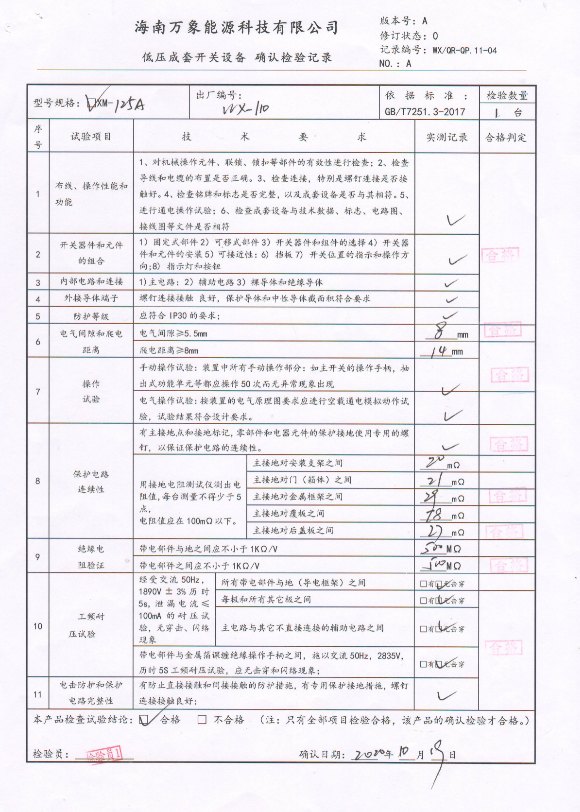 海南万象能源科技有限公司
版本号：A
修订状态：0
低压成套开关设备 确认检验记录
记录编号：WX/QR-QP.11-04
NO.：A
型号规格：XM-125A
出厂编号：WX-110
依据标准：
GB/T7251.3-2017
检验数量
1 台
序号
试验项目
技 术 要 求
实测记录
合格判定
1
布线、操作性能和功能
1、对机械操作元件、联锁、锁扣等部件的有效性进行检查；2、检查
导线和电缆的布置是否正确。3、检查连接，特别是螺钉连接是否接
触好。4、检查铭牌和标志是否完整，以及成套设备是否与其相符。5、
进行通电操作试验；6、检查成套设备与技术数据、标志、电路图、
接线图等文件是否相符
2
开关器件和元件的组合
1）固定式部件2）可移式部件3）开关器件和组件的选择4）开关器
件和元件的安装5）可接近性；6）挡板7）开关位置的指示和操作方
向；8）指示灯和按钮
合格
3
内部电路和连接
1)主电路；2）辅助电路3）裸导体和绝缘导体
4
外接导体端子
螺钉连接接触 良好，保护导体和中性导体截面积符合要求
5
防护等级
应符合 IP30 的要求；
6
电气间隙和爬电距离
电气间隙≥5.5mm
8 mm
合格
爬电距离≥8mm
14 mm
7
操作
试验
手动操作试验：装置中所有手动操作部分；如主开关的操作手柄，抽
出式功能单元等都应操作 50 次而无异常现象出现
合格
电气操作试验：按装置的电气原理图要求应进行空载通电模拟动作试
验，试验结果符合设计要求。
8
保护电路
连续性
有主接地点和接地标记，零部件和电器元件的保护接地使用专用的螺
钉，以保证保护电路的连续性。
合格
用接地电阻测试仪测出电
阻值，每台测量不得少于 5
点，
电阻值应在 100mΩ以下。
主接地对安装支架之间
20 mΩ
主接地对门（箱体）之间
21 mΩ
主接地对金属框架之间
29 mΩ
合格
主接地对覆板之间
18 mΩ
主接地对后盖板之间
27 mΩ
合格
9
绝缘电
阻验证
带电部件与地之间应不小于 1KΩ/V
500 MΩ
带电部件之间应不小于 1KΩ/V
500 MΩ
合格
10
工频耐
压试验
经受交流 50Hz，
1890V ±3%历时
5s，泄漏电流≤
100mA 的耐压试
验，无穿击、闪络
现象
所有带电部件与地（导电框架）之间
□有□无击穿
合格
每极和所有其它极之间
□有□无击穿
主电路与其它不直接连接的辅助电路之间
□有□无击穿
带电部件与金属箔课缠绝缘操作手柄之间，施以交流 50Hz，2835V，
历时 5S 工频耐压试验，应无击穿和闪络现象；
□有□无击穿
合格
11
电击防护和保护
电路完整性
有防止直接接触和间接接触的防护措施，有专用保护接地措施，螺钉
连接接触良好；
本产品检查试验结论：□ 合格 □ 不合格 （注：只有全部项目检验合格，该产品的确认检验才合格。）
检验员：检验员1
确认日期：2020年 10 月 19 日